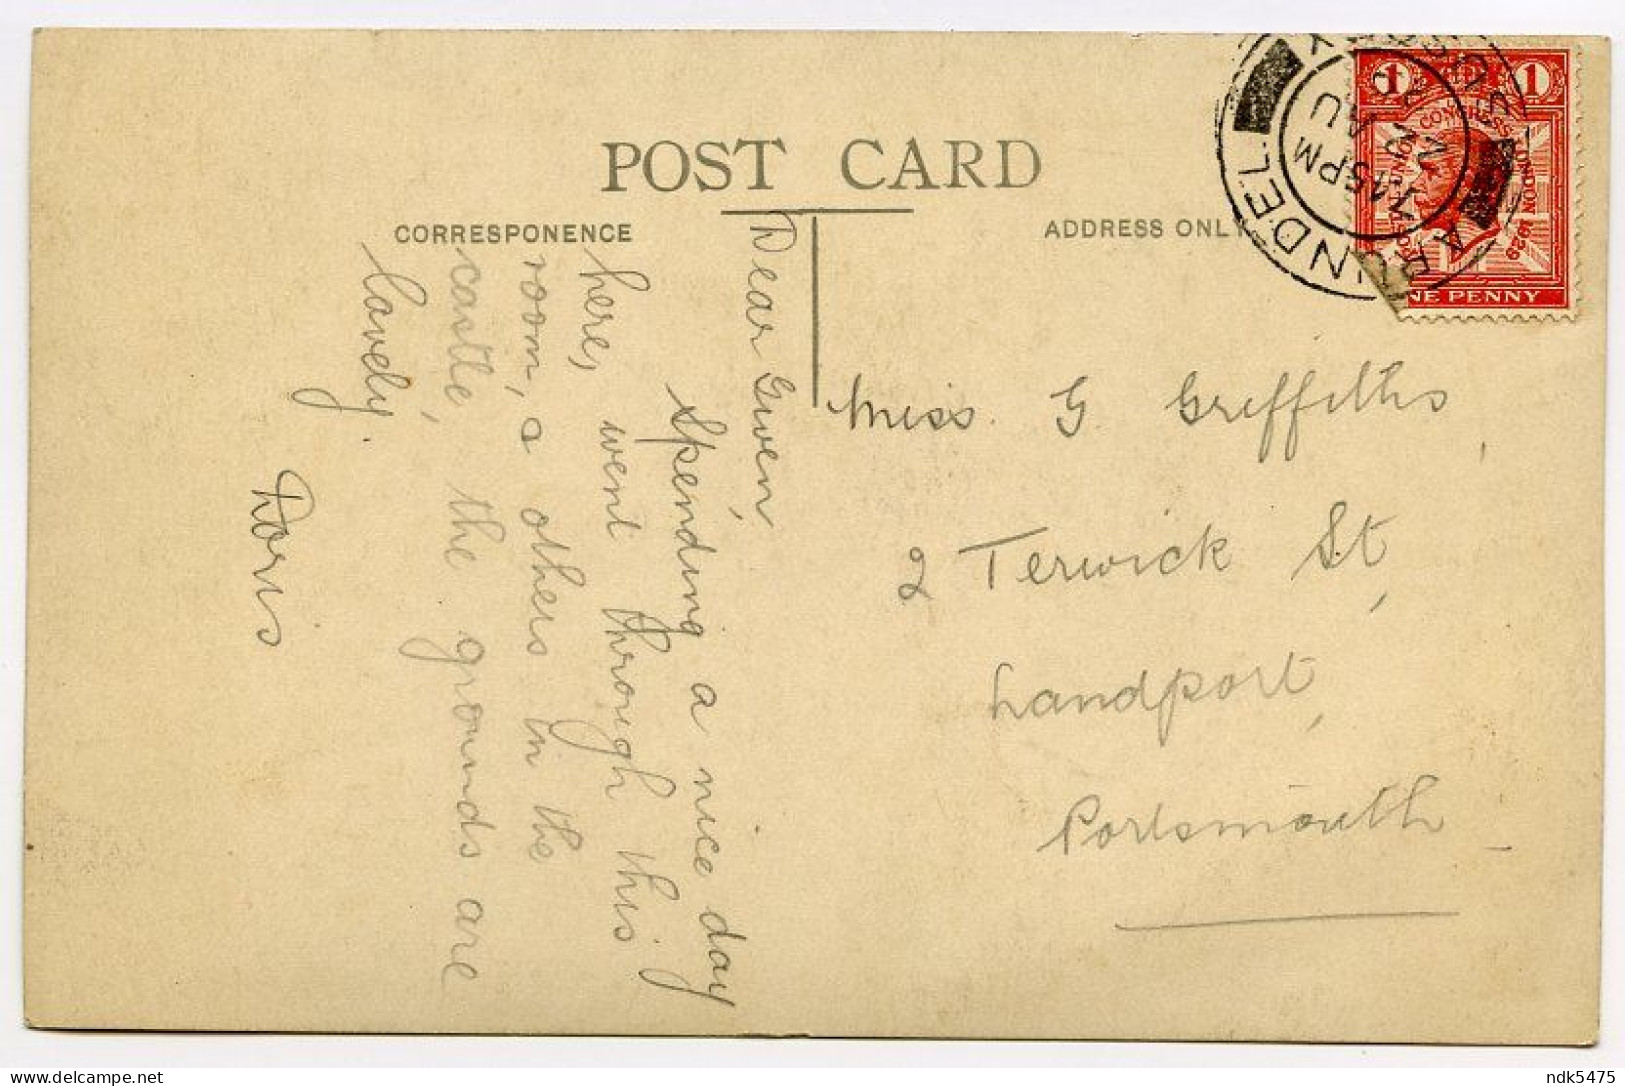 POST CARD
CORRESPONENCE
ADDRESS ONLY
Dear Gwen,
Spending a nice day
here, went through this
room, & others in the
castle, the grounds are
lovely.
Doris
Miss. G Griffiths,
2 Terwick St,
Landport,
Portsmouth
ARUNDEL
SUSSEX
7.15 PM
AU
1 1
POSTAL UNION CONGRESS LONDON 1929
NE PENNY
ndk5475